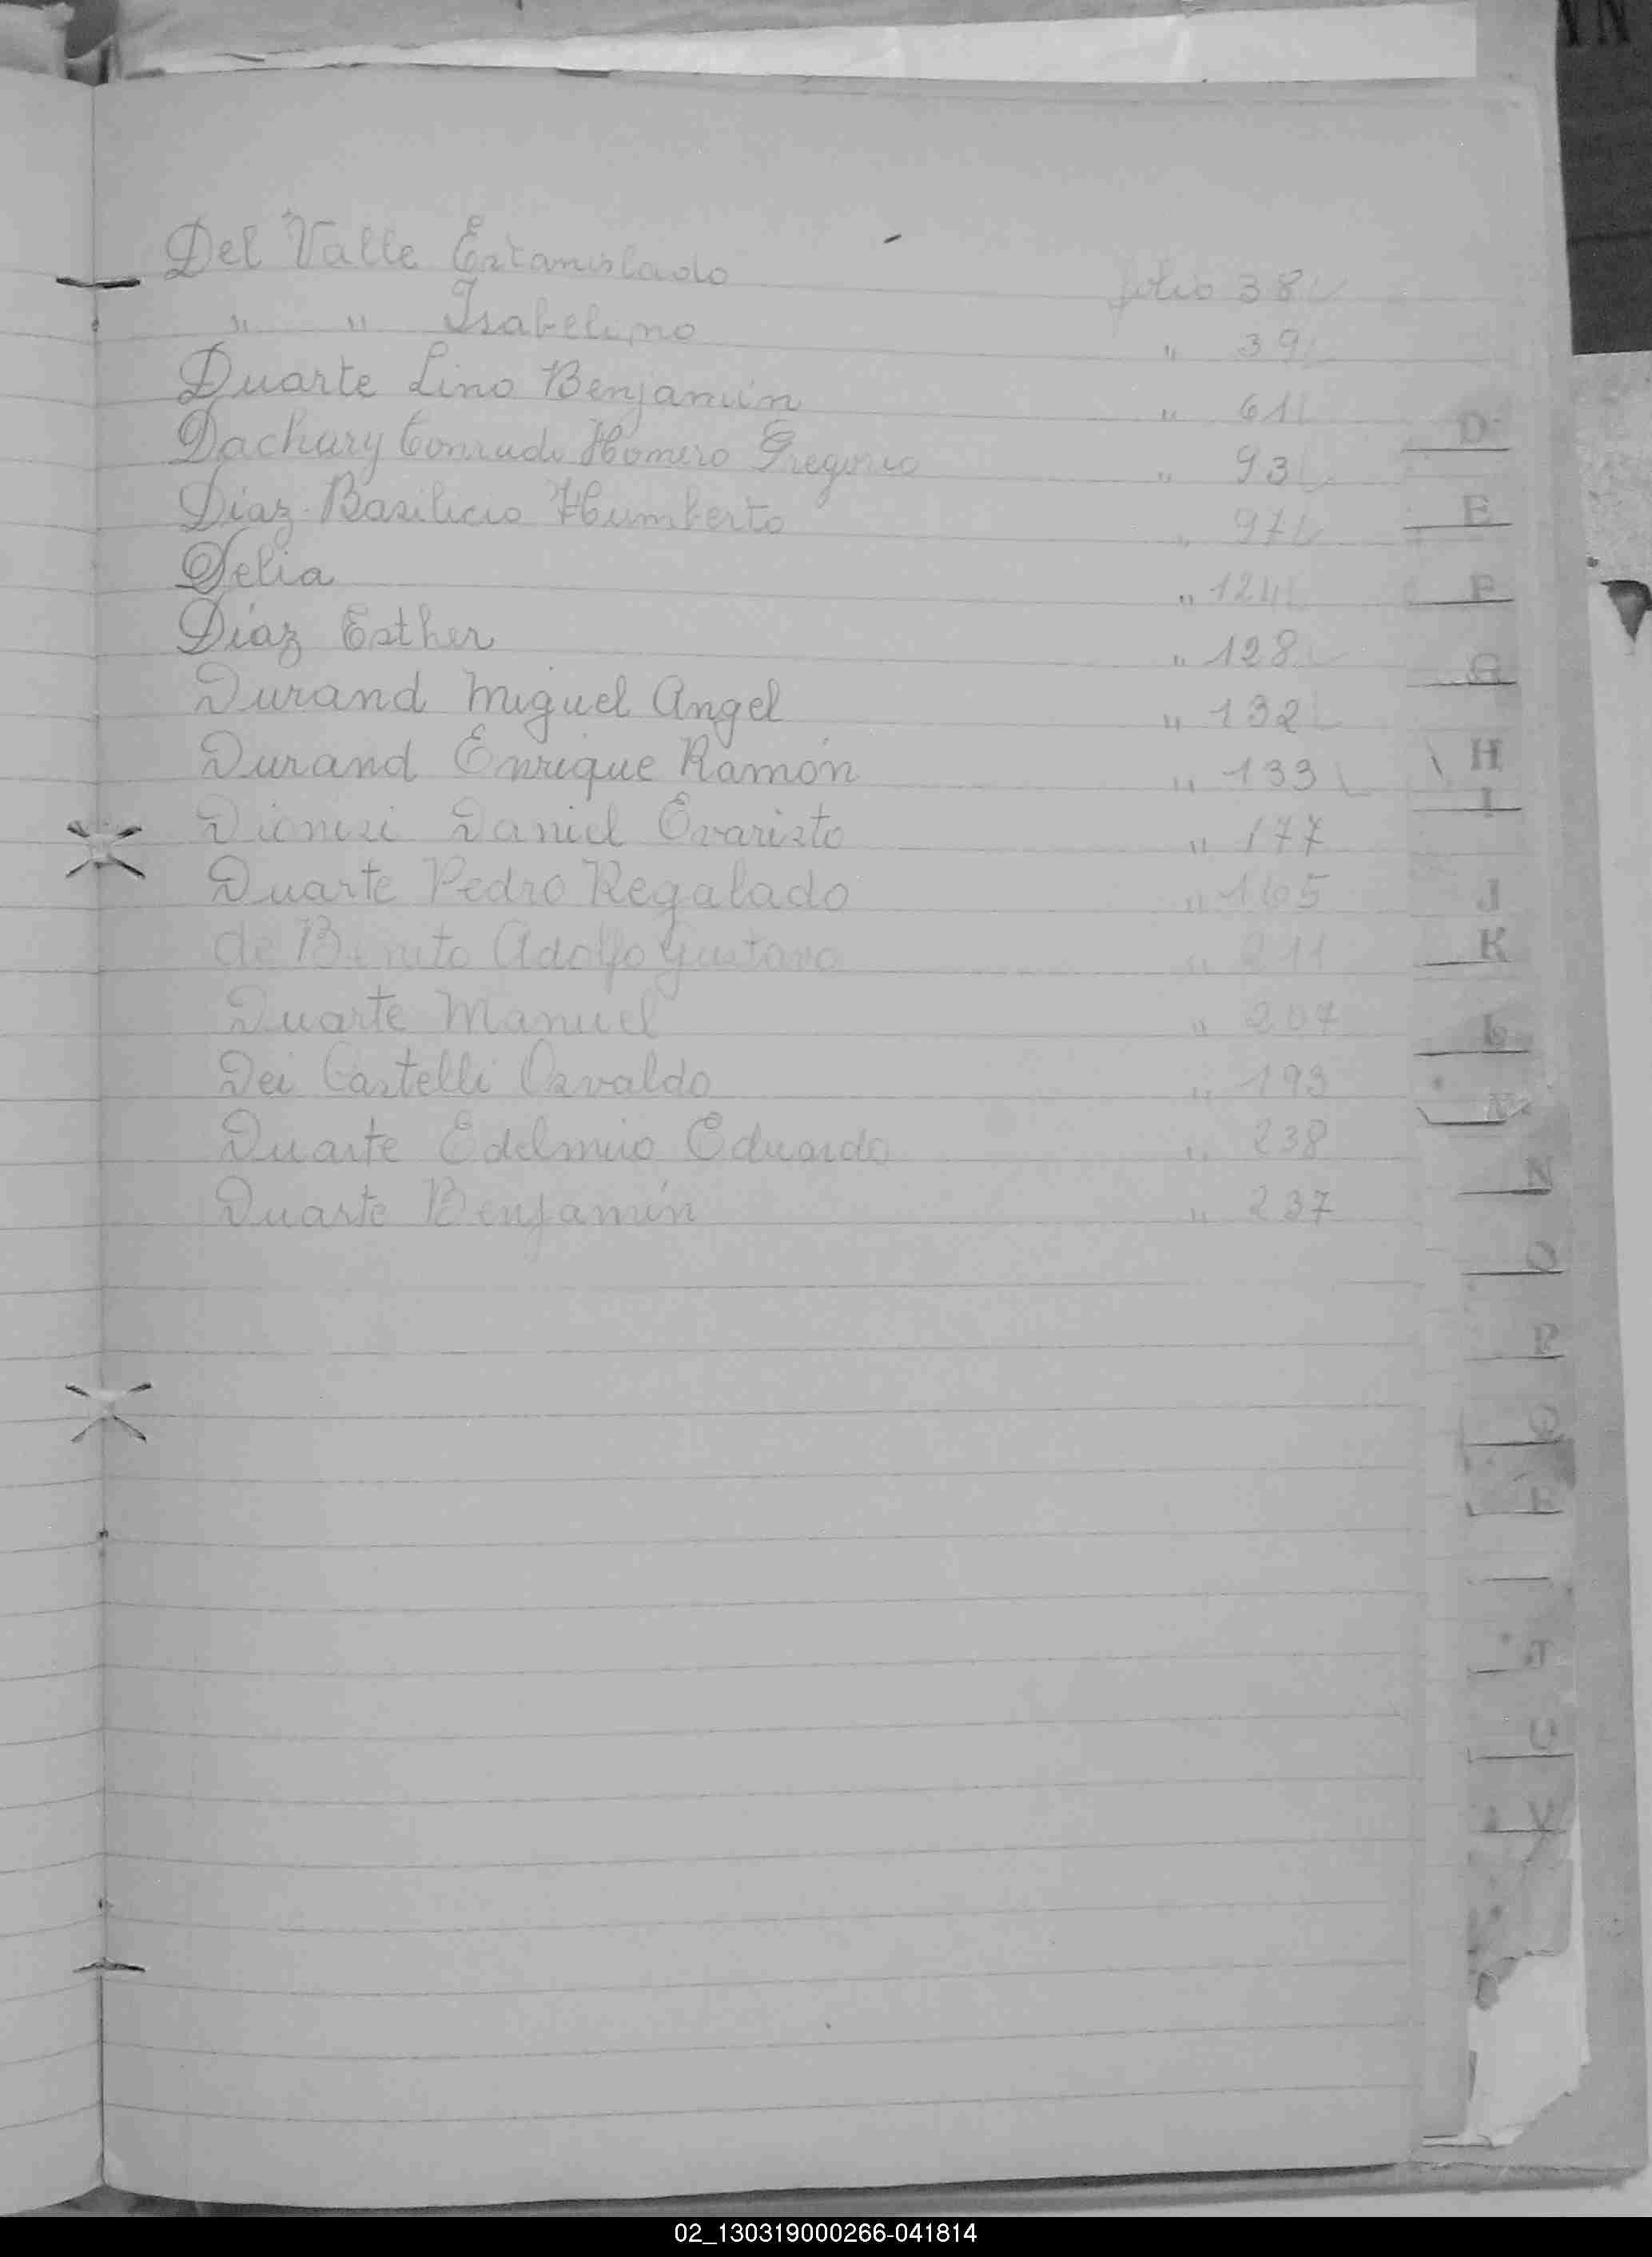 Del Valle Estanislado folio 38
" " Isabelino " 39
Duarte Lino Benjamín " 61
Dachary Conrado Homero Gregorio " 93
Díaz Basilicio Humberto " 97
Delia " 124
Díaz Esther " 128
Durand Miguel Angel " 132
Durand Enrique Ramón " 133
Dionisi Daniel Evaristo " 177
Duarte Pedro Regalado " 165
de Benito Adolfo Gustavo " 211
Duarte Manuel " 207
Dei Castelli Osvaldo " 193
Duarte Edelmiro Eduardo " 238
Duarte Benjamín " 237
D
E
F
G
H
I
J
K
L
N
O
P
Q
T
U
V
02_130319000266-041814